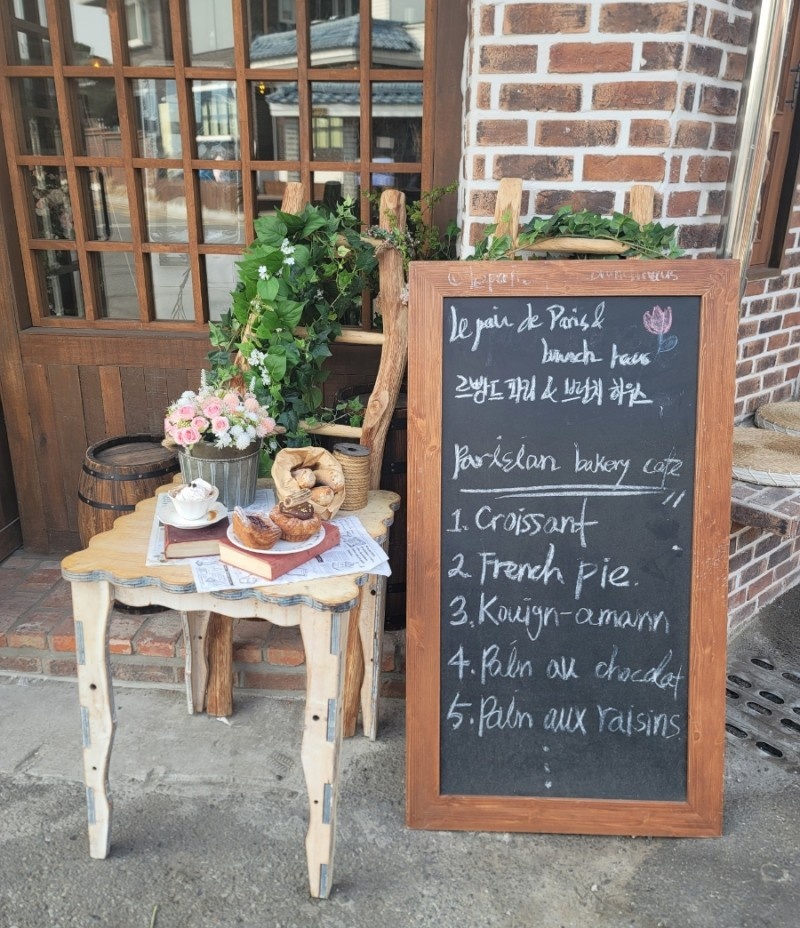 Le pain de Paris &
brunch haus
르빵드파리 & 브런치 하우스
Parisian bakery cafe
1. Croissant
2. French pie.
3. Kouign-amann
4. Pain au chocolat
5. Pain aux raisins